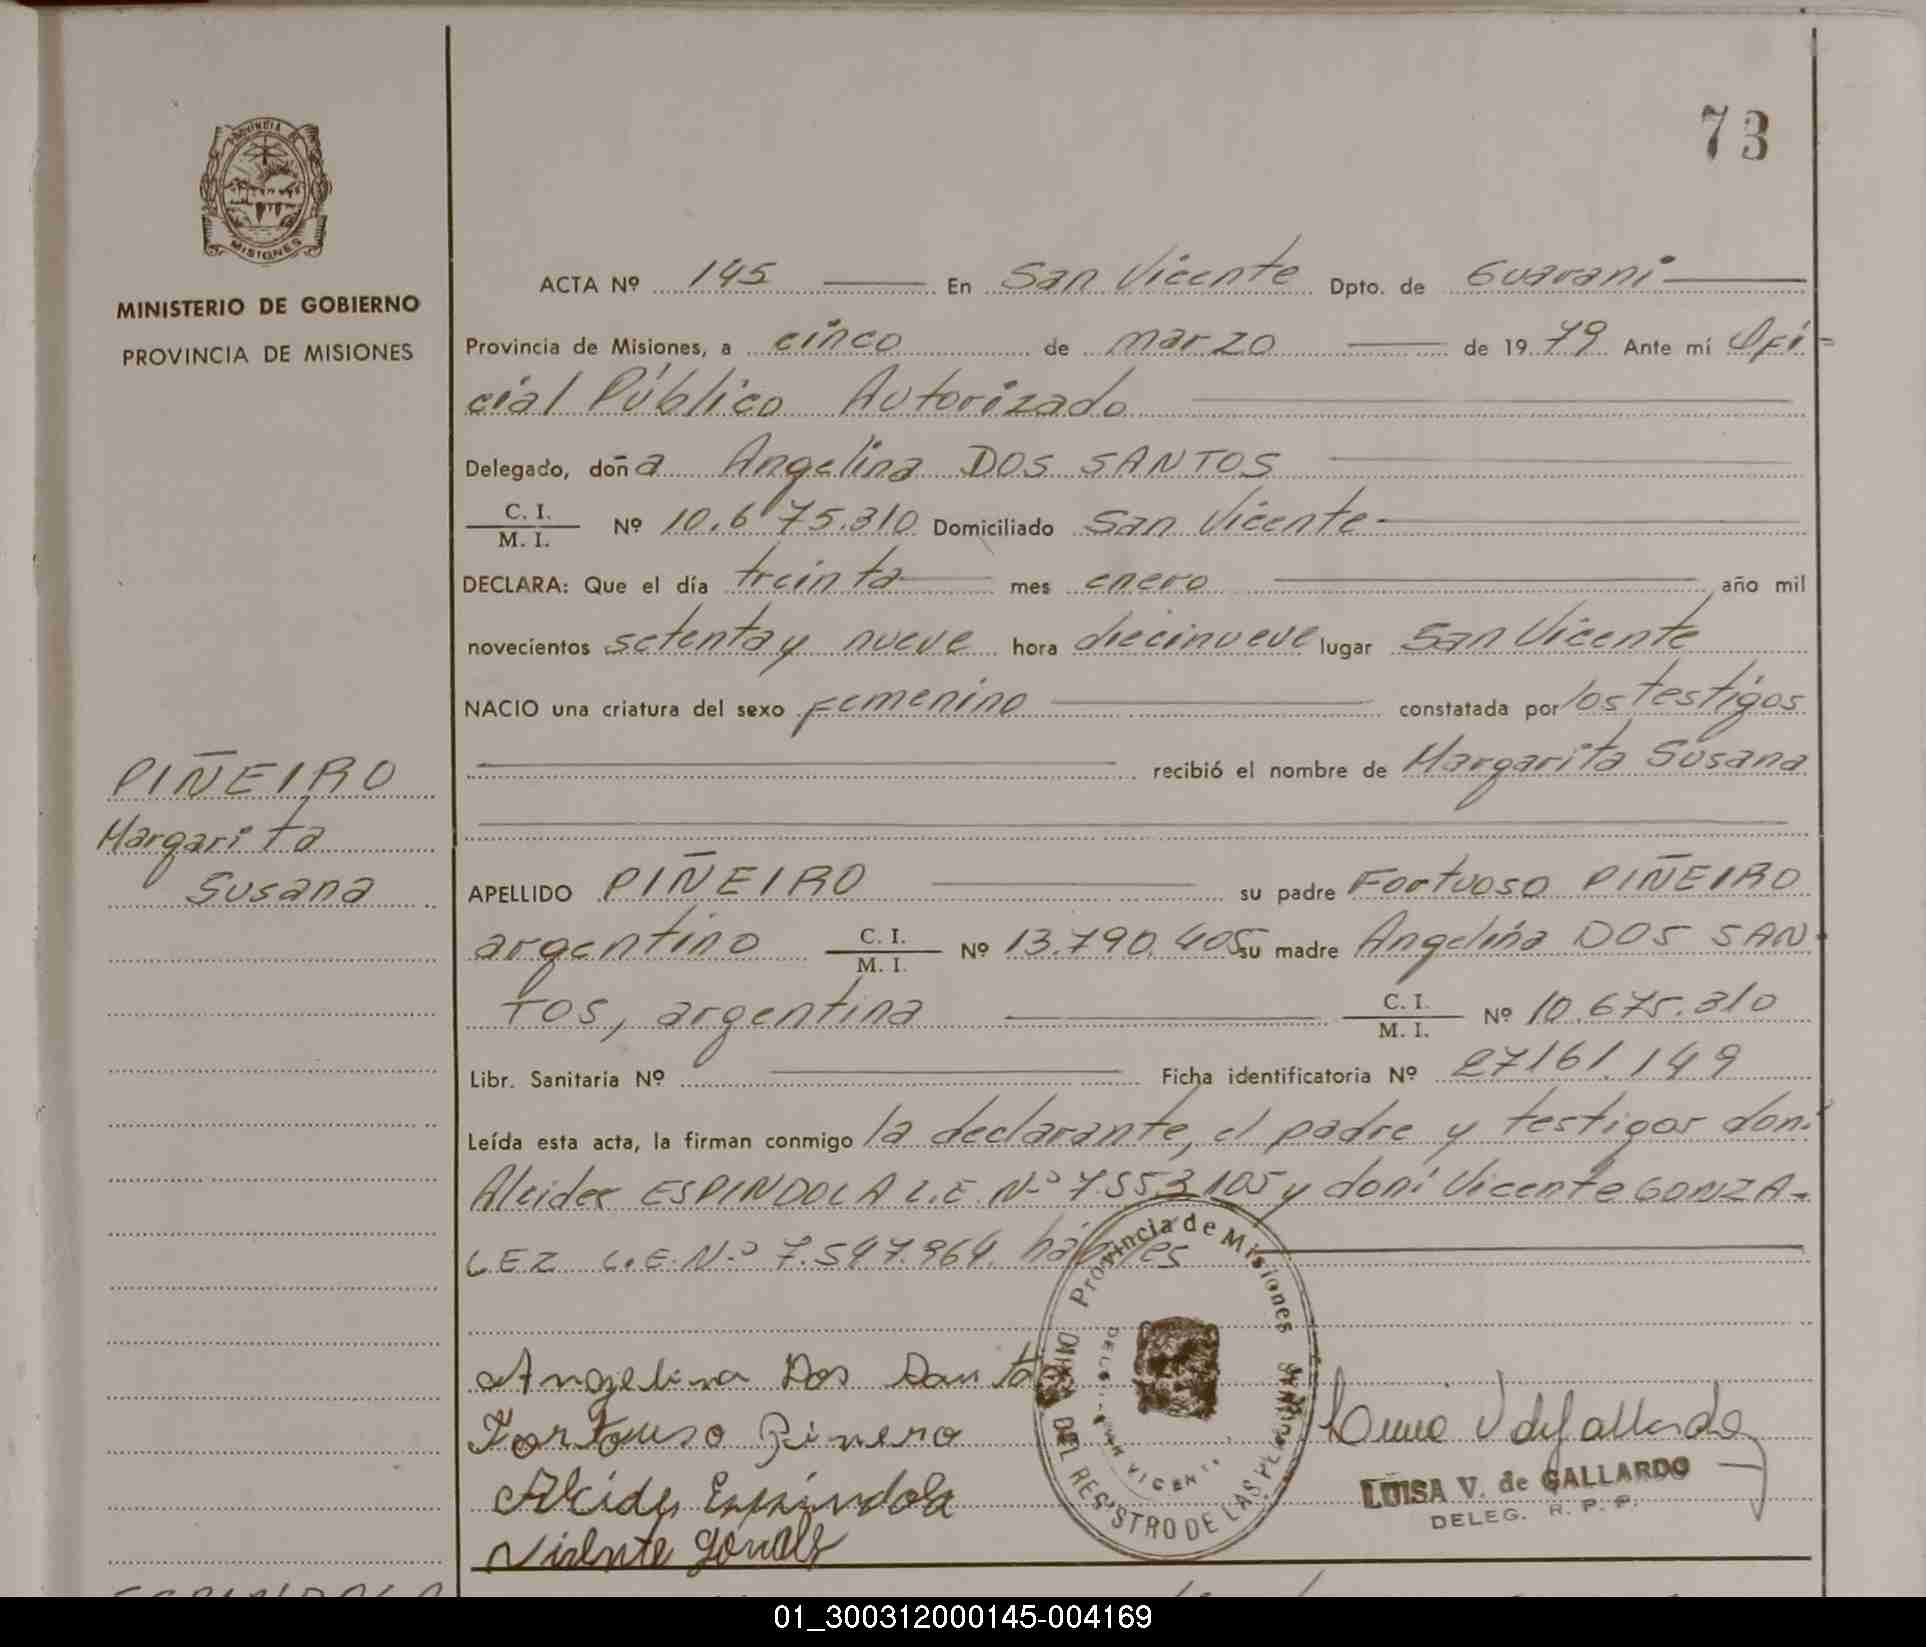 73
PROVINCIA DE
MISIONES
MINISTERIO DE GOBIERNO
PROVINCIA DE MISIONES
ACTA Nº 145 En San Vicente Dpto. de Guarani
Provincia de Misiones, a cinco de marzo de 1979 Ante mí Ofi-
cial Público Autorizado
Delegado, doña Angelina DOS SANTOS
C. I.
M. I. Nº 10.675.310 Domiciliado San Vicente
DECLARA: Que el día treinta mes enero año mil
novecientos setenta y nueve hora diecinueve lugar San Vicente
NACIO una criatura del sexo femenino constatada por los testigos
recibió el nombre de Margarita Susana
PIÑEIRO
Margarita
Susana
APELLIDO PIÑEIRO su padre Fortuoso PIÑEIRO
argentino C. I.
M. I. Nº 13.790.405 su madre Angelina DOS SAN
TOS, argentina C. I.
M. I. Nº 10.675.310
Libr. Sanitaria Nº Ficha identificatoria Nº 27161.149
Leída esta acta, la firman conmigo la declarante, el padre y testigos don:
Alcides ESPINDOLA L.E. Nº 7.553.105 y don: Vicente GONZA-
LEZ L.E. Nº 7.547.964. hábiles
Provincia de Misiones
DEL REGISTRO DE LAS
VICENTE
Angelina Dos Santos
Fortouso Pinero
Alcides Espindola
Vicente
LUISA V. de GALLARDO
DELEG. R. P. P.
01_300312000145-004169